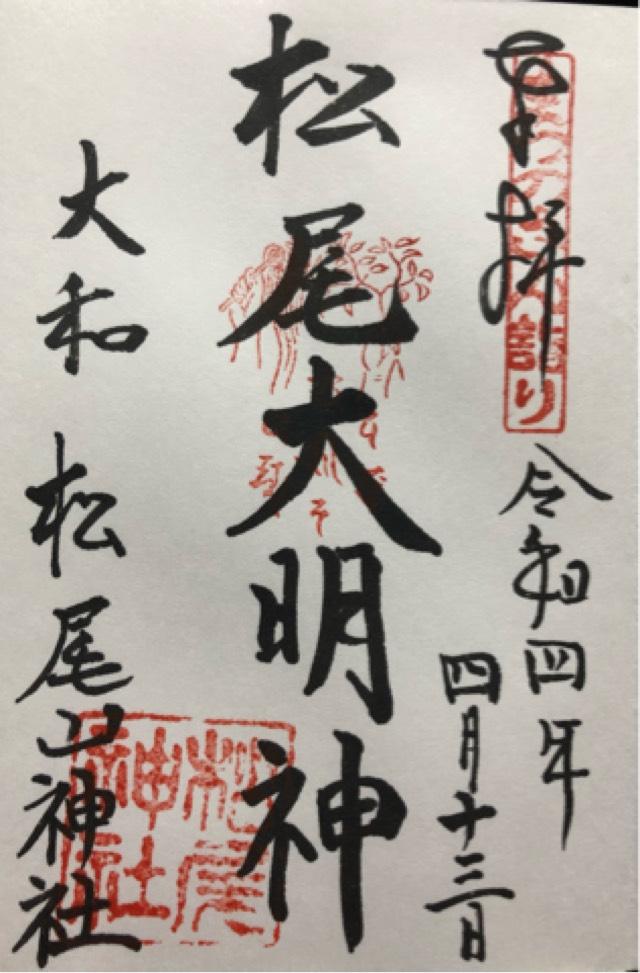 奉拝
令和四年
四月十三日
松尾大明神
大和 松尾山神社
松尾
神社